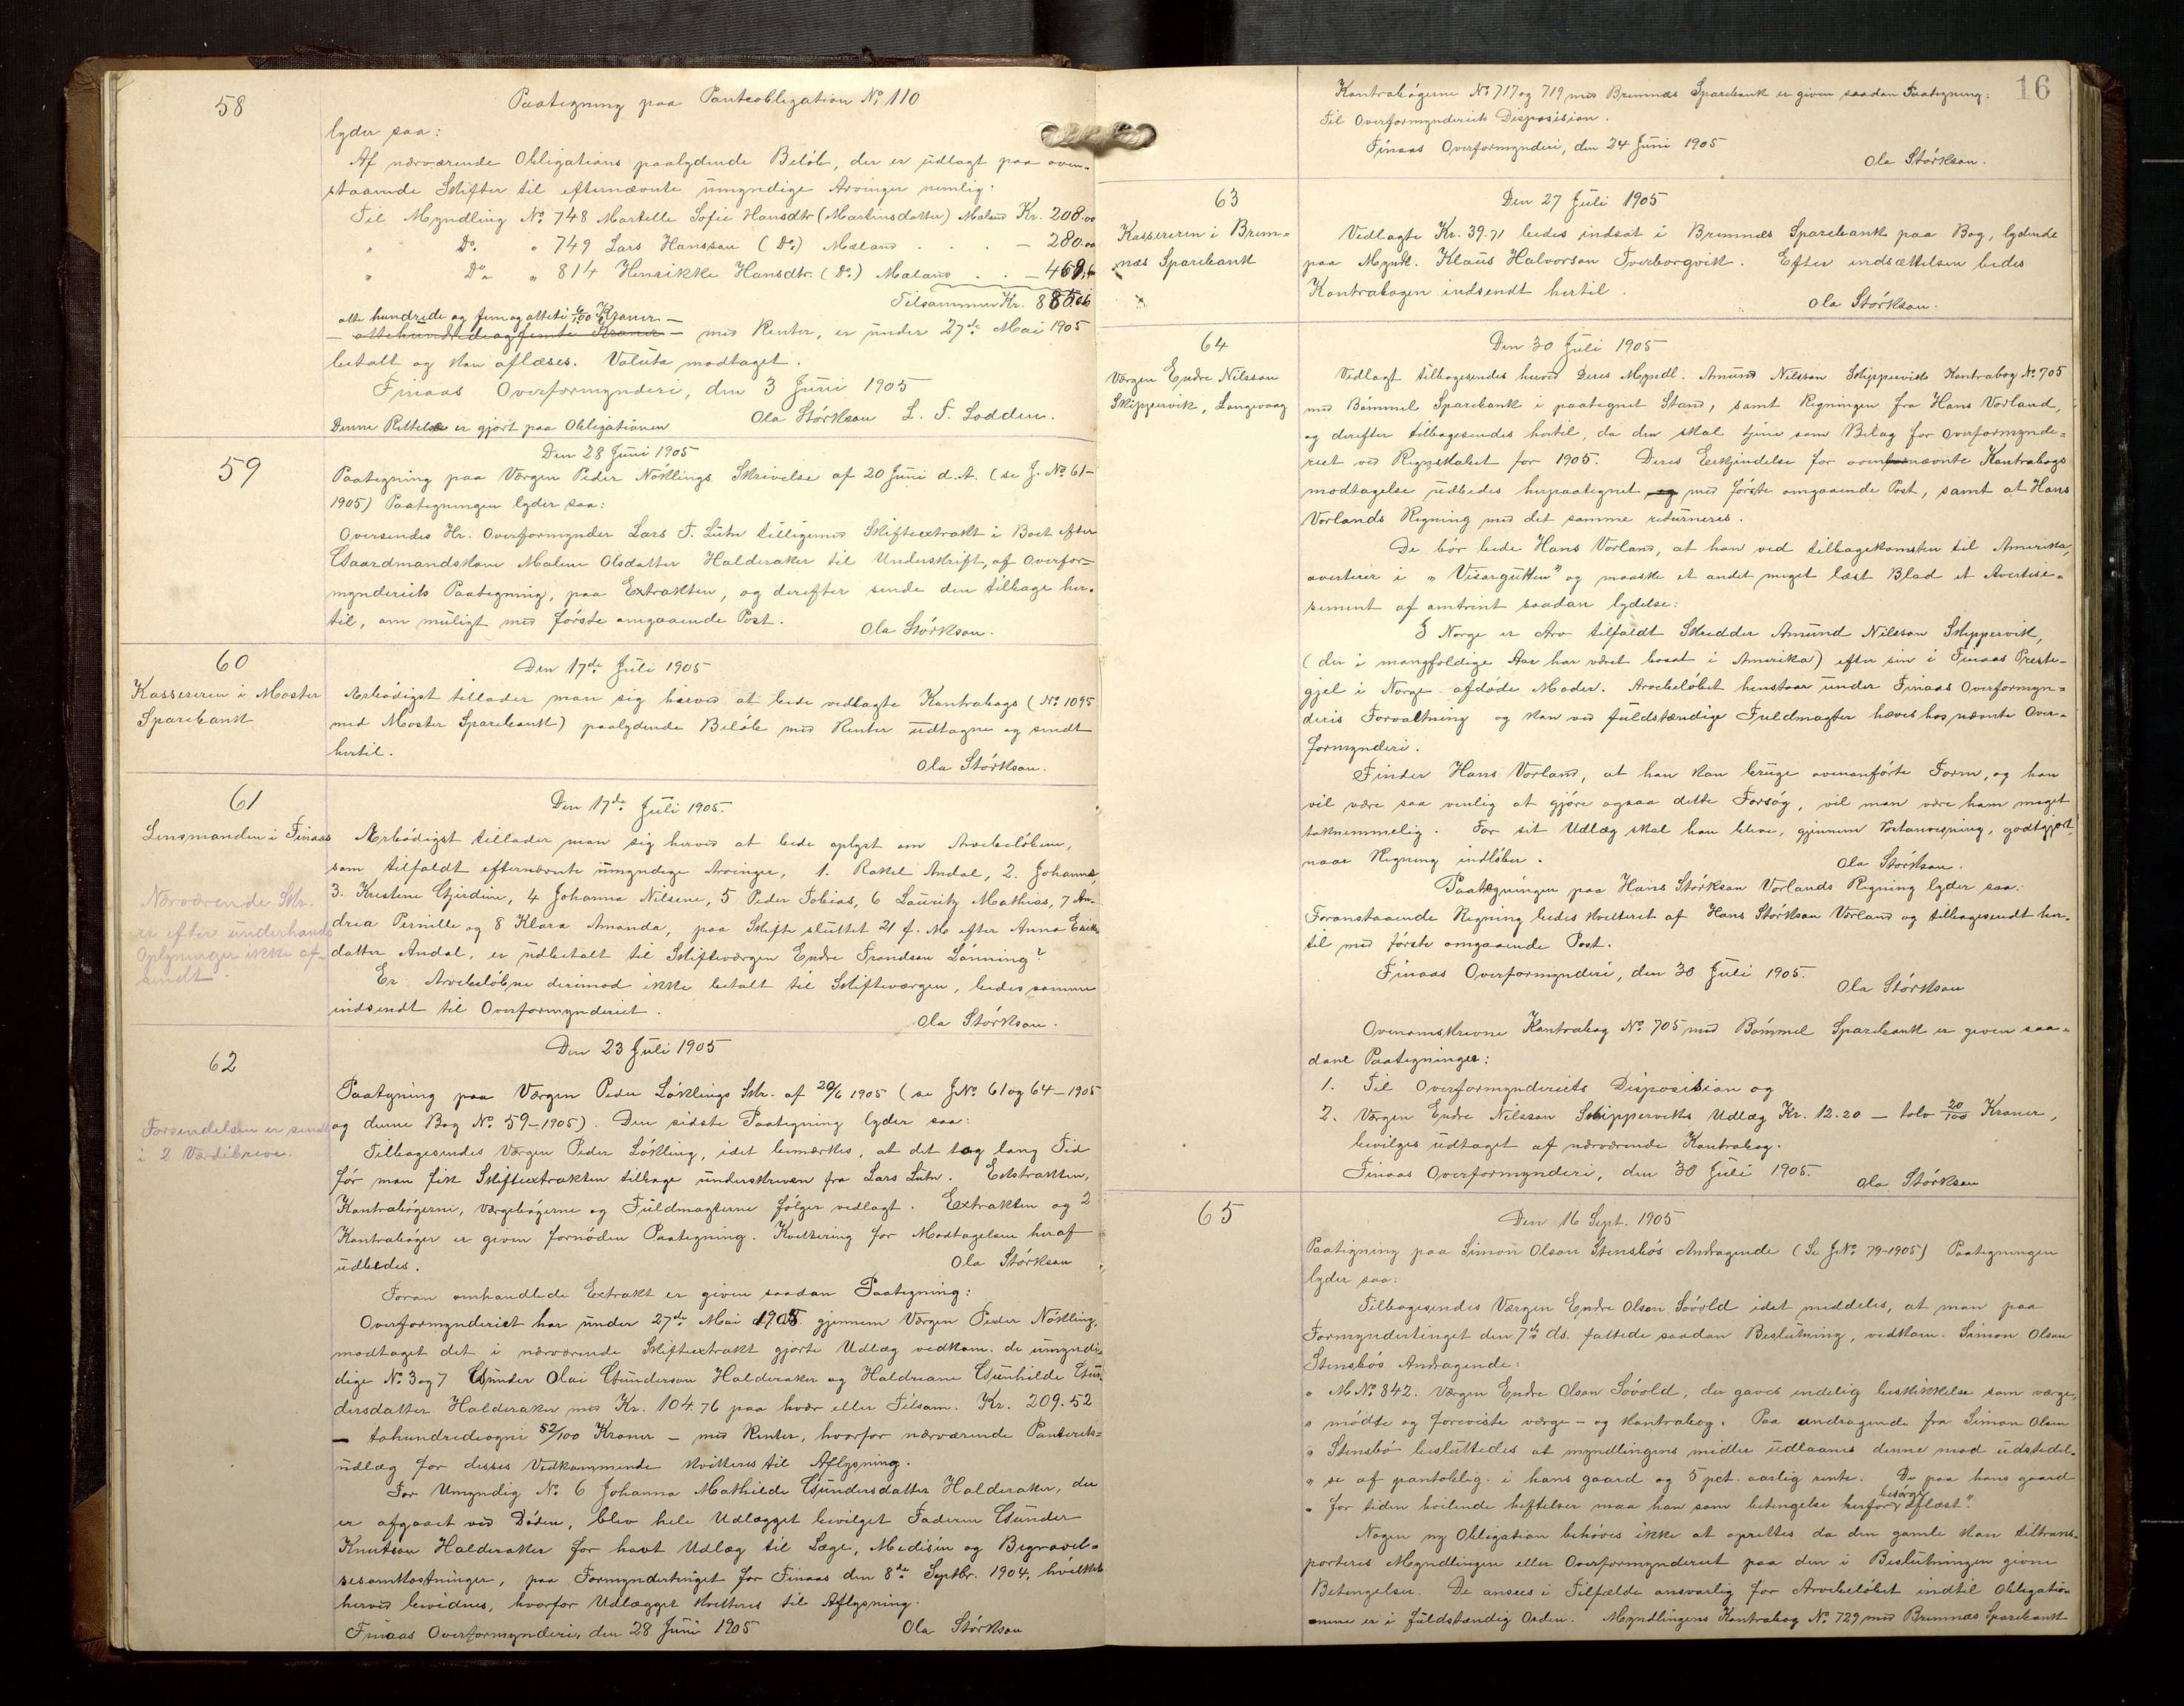 58
Paategning paa Panteobligation No. 110
lyder saa:
Af nærværende Obligations paalydende Beløb, der er udlagt paa oven-
staaende Skifter til efternævnte umyndige Arvinger nemlig:
Til Myndling No. 748 Martelle Sofie Hansdtr (Martinsdatter) Mæland Kr. 208.00
" Do. " 749 Lars Hansson (Do.) Mæland . . . — 280.00
" Do. " 814 Henrikke Hansdtr. (Do.) Mæland . . —
Tilsammen Kr.
otte hundrede og femogotteti 6/100 Kroner —
— ottehundredeogfemte Kroner — med Renter, er under 27de Mai 1905
betalt og kan aflæses. Valuta modtaget.
Finaas Overformynderi, den 3 Juni 1905
Ola Størkson L. T. Lodden.
Denne Rettelse er gjort paa Obligationen
59
Den 28 Juni 1905
Paategning paa Værgen Peder Nøklings Skrivelse af 20 Juni d.A. (se J. No 61-
1905) Paategningen lyder saa:
Oversendes Hr. Overformynder Lars T. Lutn tilligemed Skifteextrakt i Boet efter
Gaardmandskone Malene Olsdatter Halderaker til Underskrift, af Overfor-
mynderiets Paategning, paa Extrakten, og derefter sende den tilbage her-
til, om muligt med første omgaaende Post.
Ola Størkson.
60
Kassereren i Moster
Sparebank
Den 17de Juli 1905
Ærbødigst tillader man sig herved at bede vedlagte Kontrabogs (No. 1095
med Moster Sparebank) paalydende Beløb med Renter udtagne og sendt
hertil.
Ola Størkson.
61
Lensmanden i Finaas
Nærværende Skr.
er efter underhands
Oplysninger ikke af-
sendt.
Den 17de Juli 1905.
Ærbødigst tillader man sig herved at bede oplyst om Arvebeløbene,
som tilfaldt efternævnte umyndige Arvinger, 1. Rakel Andal, 2. Johanne,
3. Kristine Gjerdine, 4 Johanna Nilsene, 5 Peder Tobias, 6 Lauritz Mathias, 7 An-
drea Pernille og 8 Klara Amanda, paa Skifte sluttet 21 f. M efter Anna Eriks
datter Andal, er udbetalt til Skifteværgen Endre Trondson Lønning?
Er Arvebeløbne derimod ikke betalt til Skifteværgen, bedes samme
indsendt til Overformynderiet.
Ola Størkson.
62
Forsendelsen er sendt
i 2 Værdibreve.
Den 23 Juli 1905
Paategning paa Værgen Peder Løklings Skr. af 20/6 1905 (se JNo. 61 og 64-1905
og denne Bog No. 59-1905). Den sidste Paategning lyder saa:
Tilbagesendes Værgen Peder Løkling, idet bemærkes, at det tog lang Tid
før man fik Skifteextrakten tilbage underskreven fra Lars Lutn. Ekstrakten,
Kontrabøgerne, værgebøgerne og Fuldmagterne følger vedlagt. Extrakten og 2
Kontrabøger er given fornøden Paategning. Kvittering for Modtagelsen heraf
udbedes.
Ola Størkson
Foran omhandlede Extrakt er given saadan Paategning:
Overformynderiet har under 27de Mai 1905 gjennem Værgen Peder Nøkling,
modtaget det i nærværende Skifteextrakt gjorte Udlæg vedkom. de umyndi-
dige No. 3 og 7 Gunder Olai Gunderson Halderaker og Haldriane Gunhilde Gun-
dersdatter Halderaker med Kr. 104.76 paa hver eller Tilsam. Kr. 209.52
— tohundredeogni 52/100 Kroner — med Renter, hvorfor nærværende Panterets-
udlæg for disses Vedkommende kvitteres til Aflysning.
For Umyndig No. 6 Johanna Mathilde Gundersdatter Halderaker, der
er afgaaet ved Døden, blev hele Udlægget bevilget Faderen Gunder
Knutson Halderaker for havt Udlæg til Læge, Medisin og Begravel-
sesomkostninger, paa Formyndertinget for Finaas den 8de Septbr. 1904, hvilket
herved bevidnes, hvorfor Udlægget kvitteres til Aflysning.
Finaas Overformynderi, den 28 Juni 1905
Ola Størkson
16
Kontrabøgerne No 717 og 719 med Bremnæs Sparebank er given saadan Paategning:
Til Overformynderiets Disposision.
Finaas Overformynderi, den 24 Juni 1905
Ola Størkson.
63
Kassereren i Brem-
næs Sparebank
Den 27 Juli 1905
Vedlagte Kr. 39.71 bedes indsat i Bremnæs Sparebank paa Bog, lydende
paa Myndl. Klaus Halvorson Tverborgvik. Efter indsættelsen bedes
Kontrabogen indsendt hertil.
Ola Størkson.
64
Værgen Endre Nilsson
Skippervik, Langevaag
Den 30 Juli 1905
Vedlagt tilbagesendes herved Deres Myndl. Amund Nilsson Skippervik Kontrabog No 705
med Bømmel Sparebank i paategnet Stand, samt Regningen fra Hans Vorland,
og derefter tilbagesendes hertil, da den skal tjene som Bilag for Overformynde-
riet ved Regnskabet for 1905. Deres Erkjendelse for ovennævnte Kontrabogs
modtagelse udbedes herpaategnet og med første omgaaende Post, samt at Hans
Vorlands Regning med det samme returneres.
De bør bede Hans Vorland, at han ved tilbagekomsten til Amerika,
averterer i "Visergutten" og maaske et andet meget læst Blad et Avertise-
sement af omtrent saadan lydelse:
I Norge er Arv tilfaldt Skredder Amund Nilsson Skippervik,
(der i mangfoldige Aar har været bosat i Amerika) efter sin i Finaas Preste-
gjel i Norge afdøde Moder. Arvebeløbet henstaar under Finaas Overformyn-
deris Forvaltning og kan ved fuldstændige Fuldmagter hæves hos nævnte Over-
formynderi.
Finder Hans Vorland, at han kan bruge ovenanførte Form, og han
vil være saa venlig at gjøre ogsaa dette Forsøg, vil man være ham meget
taknemmelig. For sit Udlæg skal han blive, gjennem Postanvisning, godtgjort,
naar Regning indløber.
Ola Størkson.
Paategningen paa Hans Størkson Vorlands Regning lyder saa:
Foranstaaende Regning bedes kvitteret af Hans Størkson Vorland og tilbagesendt her-
til med første omgaaende Post.
Finaas Overformynderi, den 30 Juli 1905.
Ola Størkson
Ovenomskrevne Kontrabog No. 705 med Bømmel Sparebank er given saa-
dane Paategninger:
1. Til Overformynderiets Disposision og
2. Værgen Endre Nilsson Skipperviks Udlæg Kr. 12.20 — tolv 20/100 Kroner,
bevilges udtaget af nærværende Kontrabog.
Finaas Overformynderi, den 30 Juli 1905.
Ola Størkson
65
Den 16 Sept. 1905
Paategning paa Simon Olson Stensbøs Andragende (Se JNo. 79-1905) Paategningen
lyder saa:
Tilbagesendes Værgen Endre Olson Søvold idet meddeles, at man paa
Formyndertinget den 7de ds. fattede saadan Beslutning, vedkom. Simon Olson
Stensbøs Andragende:
" M.No. 842. Værgen Endre Olson Søvold, der gaves endelig beskikkelse som værge,
" mødte og foreviste værge- og kontrabog. Paa andragende fra Simon Olson
" Stensbø besluttedes at myndlingens midler udlaanes denne mod udstedel-
" se af pantoblig. i hans gaard og 5 pct. aarlig rente. De paa hans gaard
" for tiden hvilende heftelser maa han som betingelse herfor besørge aflæst".
Nogen ny Obligation behøves ikke at oprettes da den gamle kan tiltrans-
porteres Myndlingen eller Overformynderiet paa den i Beslutningen givne
Betingelser. De ansees i Tilfælde ansvarlig for Arvebeløbet indtil Obligatio-
nene er i fuldstændig Orden. Myndlingens Kontrabog No. 729 med Bremnæs Sparebank